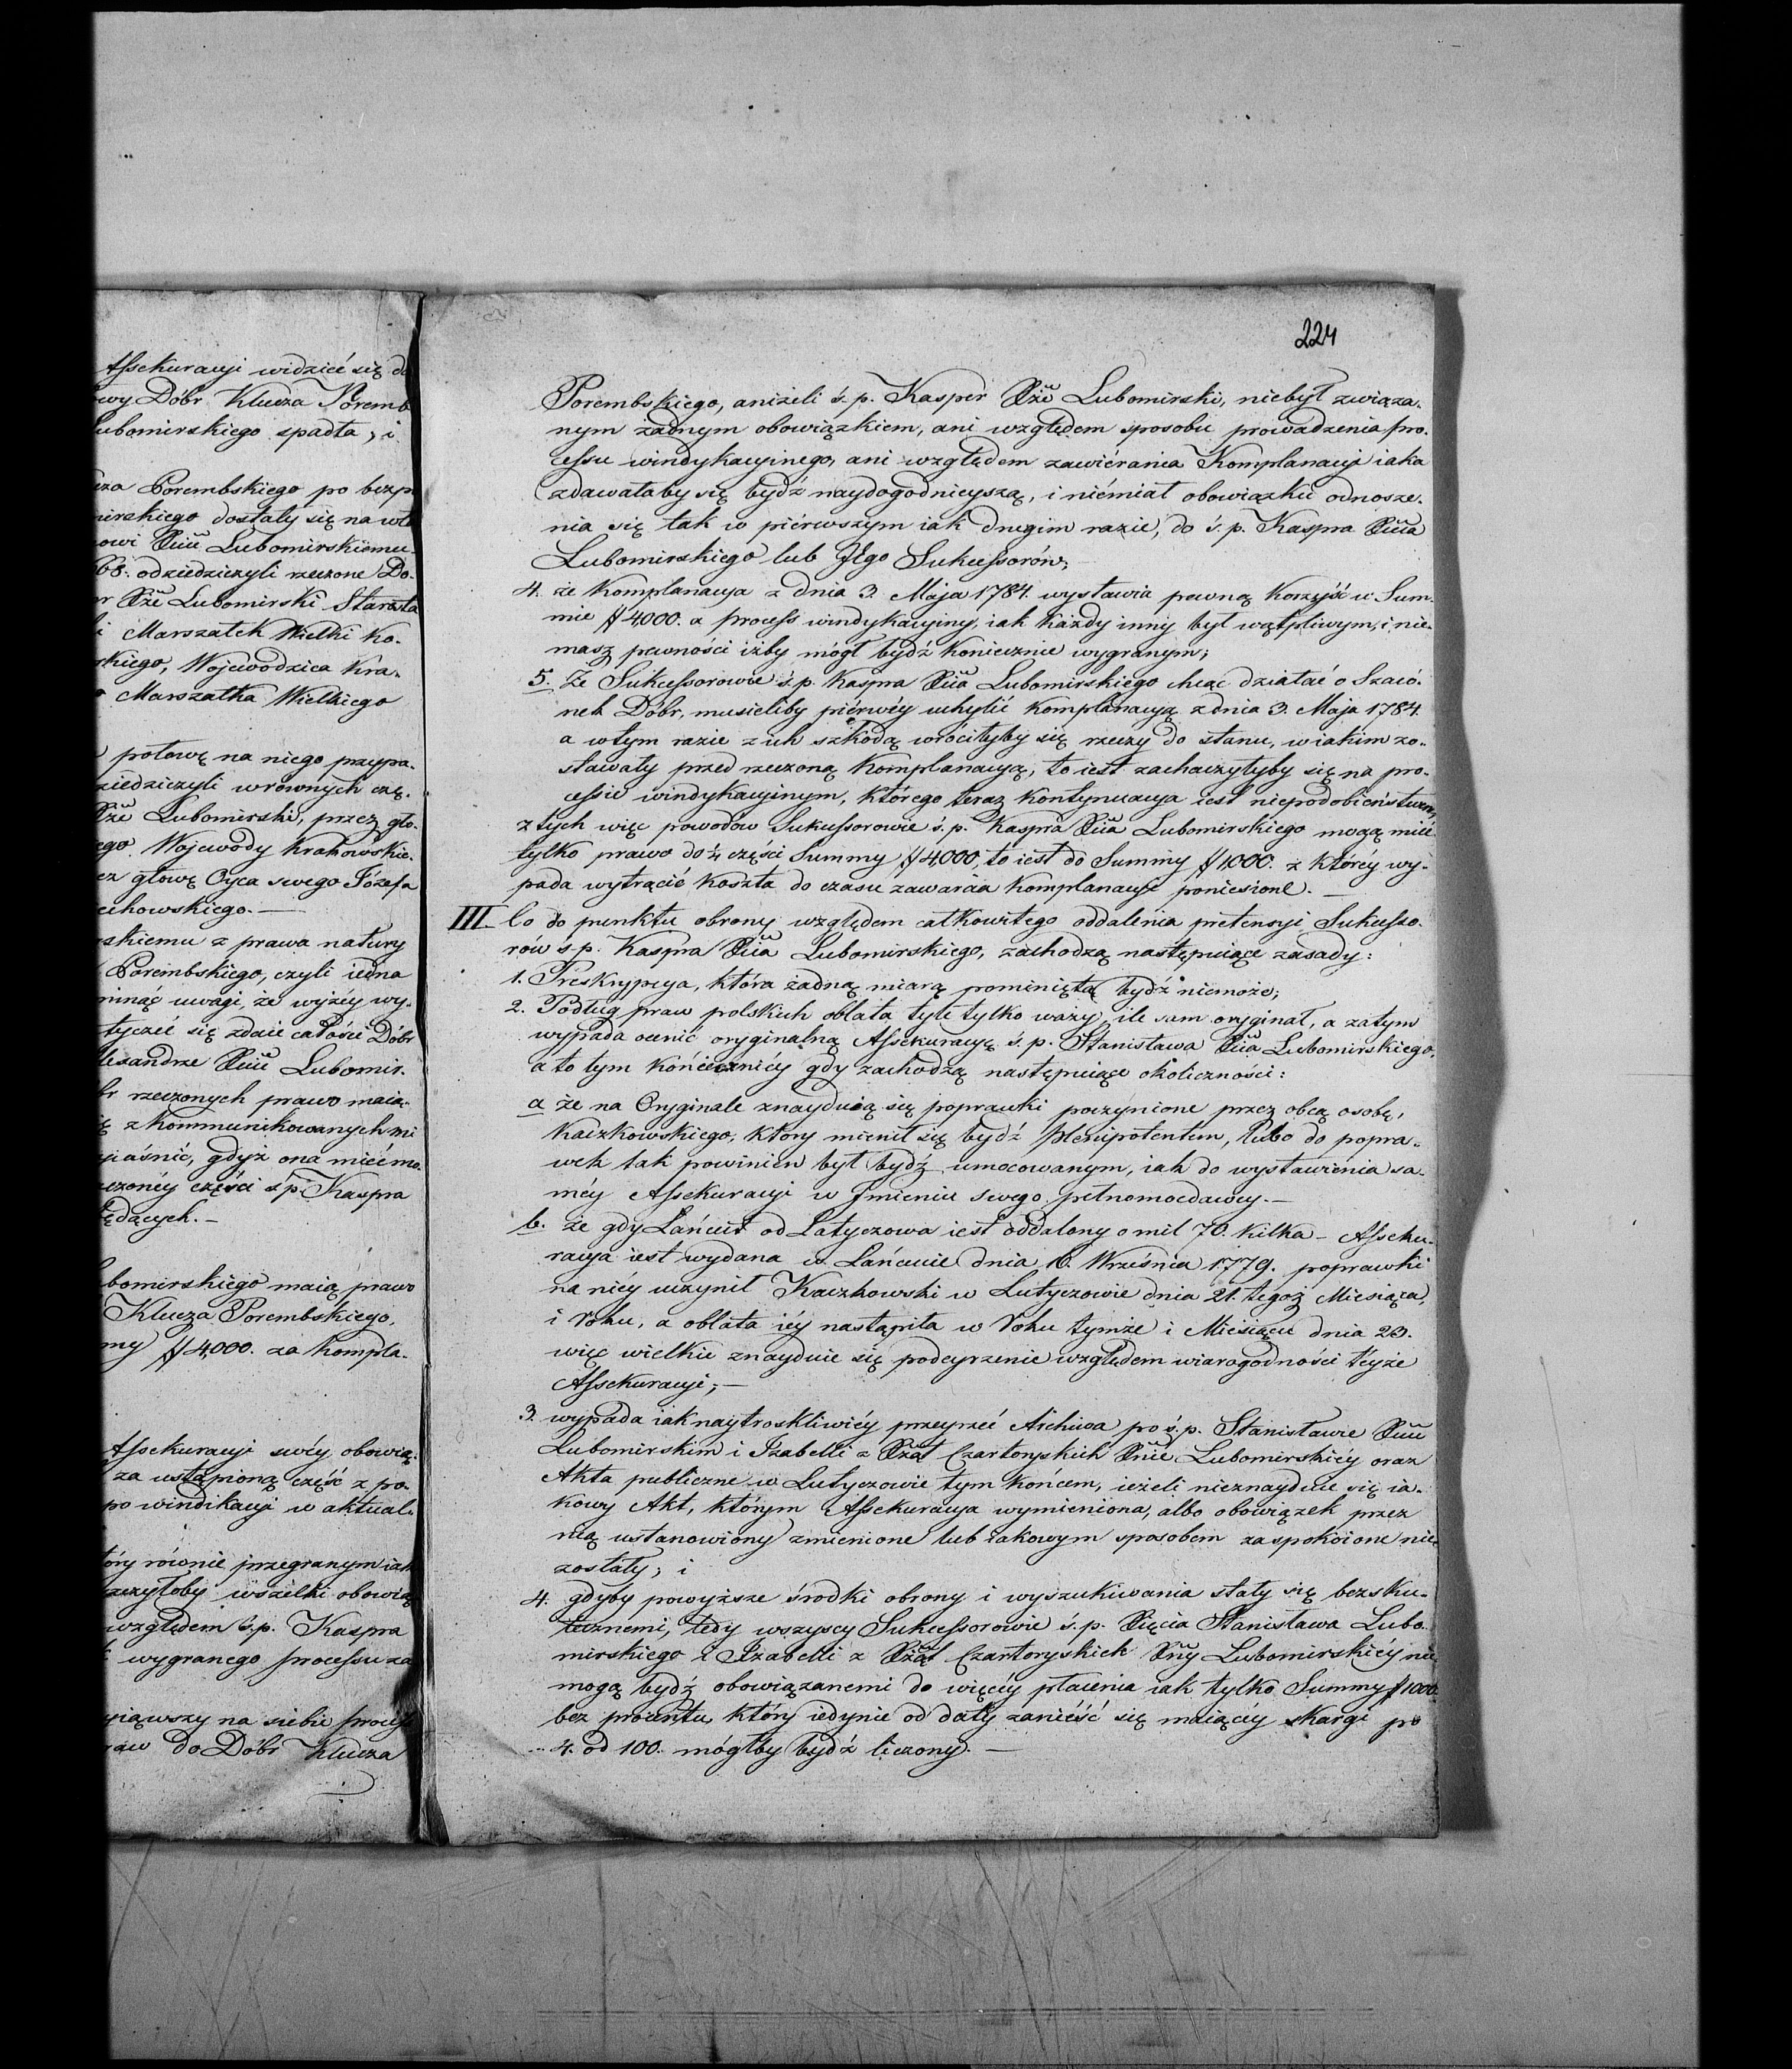 Assekuracyi widzieć się d
wy Dóbr Klucza Poremb
ubomirskiego spadła, i
za Porembskiego po bezp
mirskiego dostały się na wł
owi Xciu Lubomirskiemu
68. odziedziczyli rzeczone Do-
Xże Lubomirski Starosta
i Marszałek Wielki Ko-
kiego, Wojewodzica Kra-
Marszałka Wielkiego
połowę na niego przypa-
iedziczyli w równych czę-
Xże Lubomirski, przez gło-
ego Wojewody Krakowskie-
ez głowę Oyca swego Józefa
echowskiego.—
skiemu z prawa natury
Porembskiego, czyli iedna
minąć uwagi, że wyżéy wy-
tyczeć się zdaie całości Dóbr
lexandrze Xciu Lubomir-
br rzeczonych prawo maią-
ę z kommunikowanych mi
iaśnić, gdyż ona mieć mo-
czonéy części ś. p. Kaspra
ędzących.—
bomirskiego maią prawo
Klucza Porembskiego,
my # 4,000. za Kompla-
Assekuracyi swéy obowią-
za ustąpioną część z po-
po windikacyi w aktual-
tóry równie przegranym iak
czyłoby wszelki obowią
względem ś. p. Kaspra
wygranego processu za
iąwszy na siebie process
raw do Dóbr Klucza
224
Porembskiego, aniżeli ś. p. Kasper Xże Lubomirski, niebył związa-
nym żadnym obowiązkiem, ani względem sposobu prowadzenia pro-
cessu windykacyinego, ani względem zawiérania Komplanacyi iaka
zdawałaby się bydź naydogodnieyszą, i niémiał obowiązku odnosze-
nia się tak w piérwszym iak drugim razie, do ś. p. Kaspra Xcia
Lubomirskiego lub Jego Sukcessorów;
4. że Komplanacya z dnia 3. Maja 1784. wystawia pewną korzyść w Sum-
mie # 4,000. a process windykacyiny, iak każdy inny był wątpliwym, i nie-
masz pewności iżby mógł bydź koniecznie wygranym;
5. Że Sukcessorowie ś. p. Kaspra Xcia Lubomirskiego chcąc działać o Szacó-
nek Dóbr, musieliby piérwéy uchylić Komplanacyą z dnia 3. Maja 1784.
a w tym razie z ich szkodą wróciłyby się rzeczy do stanu, w iakim zo-
stawały przed rzeczoną Komplanacyą, to iest zachaczyłyby się na pro-
cessie windykacyinym, którego teraz kontynuacya iest niepodobieństwem,
z tych więc powodów Sukcessorowie ś. p. Kaspra Xcia Lubomirskiego mogą mieć
tylko prawo do ¼ części Summy # 4,000, to iest do Summy # 1000. z któréy wy-
pada wytrącić koszta do czasu zawarcia Komplanacyi poniesione.—
III. Co do punktu obrony względem całkowitego oddalenia pretensyi Sukcesso-
rów ś. p. Kaspra Xcia Lubomirskiego, zachodzą następuiące zasady:
1. Preskrypcya, która żadną miarą pominiętą bydź niemoże;
2. Podług praw polskich oblata tyle tylko waży, ile sam oryginał, a zatym
wypada ocenić oryginalną Assekuracyę ś. p. Stanisława Xcia Lubomirskiego,
a to tym kóniecznićy gdy zachodzą następuiące okoliczności:
a że na Oryginale znayduią się poprawki poczynione przez obcą osobę,
Kaczkowskiego, który mienił się bydź plenipotentem, lubo do popra-
wek tak powinien był bydź umocowanym, iak do wystawienia sa-
méy Assekuracyi w Jmieniu swego pełnomocdawcy.—
b. że gdy Łańcut od Latyczowa iest oddalony o mil 70. kilka – Asseku-
racya iest wydana w Łańcucie dnia 16. Września 1779. poprawki
na niéy uczynił Kaczkowski w Lutyczowie dnia 21. tegoż Miesiąca,
i roku, a oblata iéy nastąpiła w roku tymże i Miesiącu dnia 23.
więc wielkie znayduie się podeyrzenie względem wiarogodności téyże
Assekuracyi;—
3. wypada iak naytroskliwiéy przeyrzeć Archiwa po ś. p. Stanisławie Xciu
Lubomirskim i Izabelli z Xżąt Czartoryskich Xnie Lubomirskiéy oraz
Akta publiczne w Lutyczowie tym końcem, ieżeli nieznayduie się ia-
kowy Akt, którym Assekuracya wymieniona, albo obowiązek przez
nią ustanowiony zmienione lub iakowym sposobem zaspokoione nie
zostały; i
4. gdyby powyższe środki obrony i wyszukiwania stały się bezsku-
tecznemi, tedy wszyscy Sukcessorowie ś. p. Xięcia Stanisława Lubo-
mirskiego i Izabelli z Xżąt Czartoryskich Xny Lubomirskiéy nie
mogą bydź obowiązanemi do więcéy płacenia iak tylko Summy # 1000.
bez procentu, który iedynie od daty zanieść się maiącéy skargi po
4. od 100. mógłby bydź liczony.—